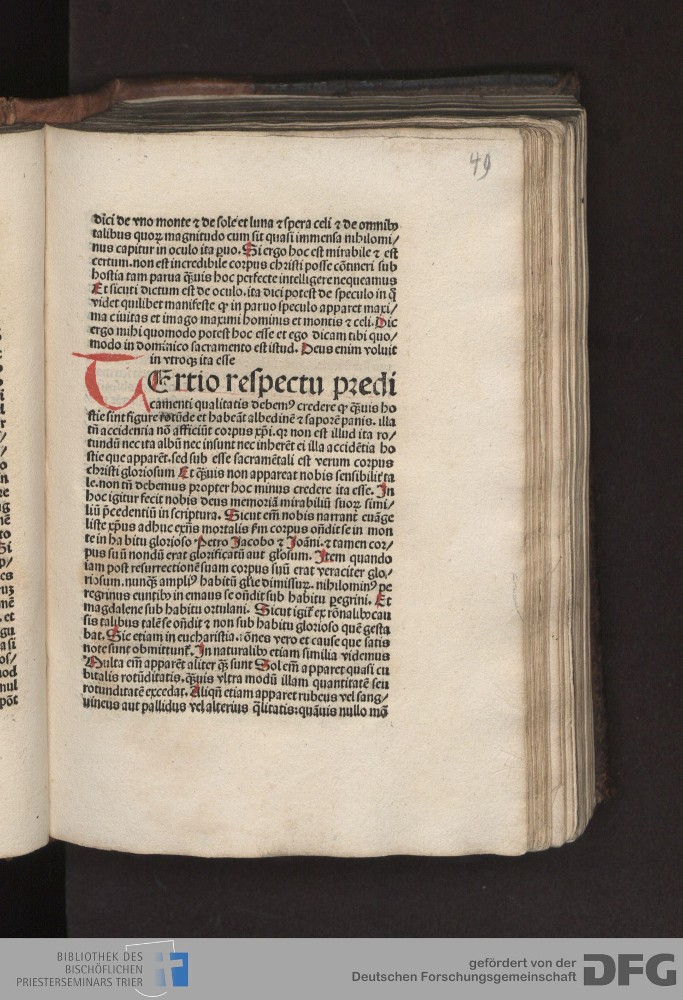 49
dici de vno monte ⁊ de sole et luna ⁊ spera celi ⁊ de omnibꝰ
talibus quoꝝ magnitudo cum sit quasi immensa nihilomi/
nus capitur in oculo ita ꝑuo. Si ergo hoc est mirabile ⁊ est
certum. non est incredibile corpus christi posse cōtineri sub
hostia tam parua q̄uis hoc perfecte intelligere nequeamus
Et sicuti dictum est de oculo. ita dici potest de speculo in q̄
videt quilibet manifeste ꝙ in paruo speculo apparet maxi/
ma ciuitas et imago maximi hominis et montis ⁊ celi. Dic
ergo mihi quomodo potest hoc esse et ego dicam tibi quo/
modo in dominico sacramento est istud. Deus enim voluit
in vtroqꝫ ita esse
TErtio respectu predi
camenti qualitatis debemꝰ credere ꝙ q̄uis ho
stie sint figure rotūde et habeāt albedinē ⁊ saporē panis. illa
tn̄ accidentia nō afficiūt corpus xp̄i. qr non est illud ita ro/
tundū nec ita albū nec insunt nec inherēt ei illa accidētia ho
stie que apparēt. sed sub esse sacramētali est verum corpus
christi gloriosum Et q̄uis non appareat nobis sensibilit᷑ ta
le. non tn̄ debemus propter hoc minus credere ita esse. In
hoc igitur fecit nobis deus memoriā mirabiliū suoꝝ simi/
liū p̄cedentiū in scriptura. Sicut em̄ nobis narrant euāge
liste xp̄us adhuc exn̄s mortalis ẜm corpus on̄dit se in mon
te in habitu glorioso Petro Iacobo ⁊ Ioāni. ⁊ tamen cor/
pus suū nondū erat glorificatū aut gl̄osum. Item quando
iam post resurrectionē suam corpus suū erat veraciter glo/
riosum. nunqꝫ ampliꝰ habitū gl̄ie dimissurꝝ. nihilominꝰ pe
regrinus euntibꝰ in emaus se on̄dit sub habitu ꝑegrini. Et
magdalene sub habitu ortulani. Sicut igit᷑ ex rōnalibꝰ cau
sis talibus talē se on̄dit ⁊ non sub habitu glorioso quē gesta
bat. Sic etiam in eucharistia. :ōnes vero et cause que satis
note sunt obmittunt᷑. In naturalibꝰ etiam similia videmus
Multa em̄ apparēt aliter q̄ꝫ sunt Sol em̄ apparet quasi cu
bitalis rotūditatis. q̄uis vltra modū illam quantitatē seu
rotunditatē excedat. Aliqn̄ etiam apparet rubeus vel sang/
uineus aut pallidus vel alterius q̄litatis: quāuis nullo mō
BIBLIOTHEK DES
BISCHÖFLICHEN
PRIESTERSEMINARS TRIER
gefördert von der
Deutschen Forschungsgemeinschaft
DFG